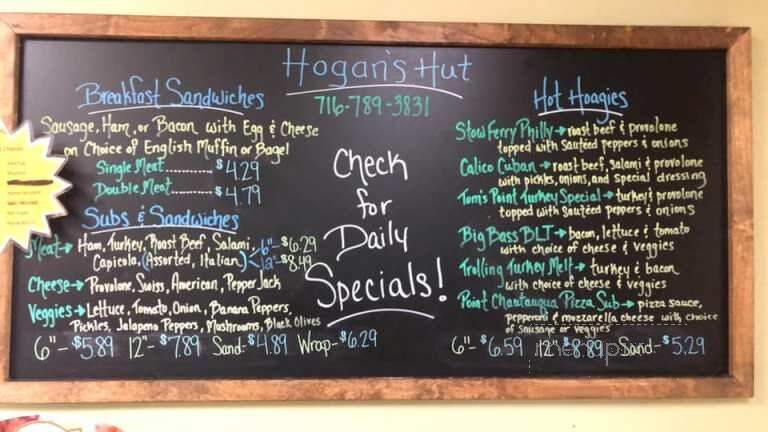 Hogan's Hut
716-789-3831
Breakfast Sandwiches
Sausage, Ham, or Bacon with Egg & Cheese
on Choice of English Muffin or Bagel
Single Meat.......... $4.29
Double Meat.......... $4.79
Subs & Sandwiches
Meat→ Ham, Turkey, Roast Beef, Salami, 6" - $6.29
Capicola, (Assorted, Italian) 12" - $8.49
Cheese→ Provolone, Swiss, American, Pepper Jack
Veggies→ Lettuce, Tomato, Onion, Banana Peppers,
Pickles, Jalapeno Peppers, Mushrooms, Black Olives
6" - $5.89 12" - $7.89 Sand- $4.89 Wrap- $6.29
Check
for
Daily
Specials!
Hot Hoagies
Stow Ferry Philly→ roast beef & provolone
topped with sautéed peppers & onions
Calico Cuban→ roast beef, salami & provolone
with pickles, onions, and special dressing
Tom's Point Turkey Special→ turkey & provolone
topped with sautéed peppers & onions
Big Bass BLT→ bacon, lettuce & tomato
with choice of cheese & veggies
Trolling Turkey Melt→ turkey & bacon
with choice of cheese & veggies
Point Chautauqua Pizza Sub→ pizza sauce,
pepperoni & mozzarella cheese with choice
of sausage or veggies
6" - $6.59 12" $8.89 Sand- $5.29